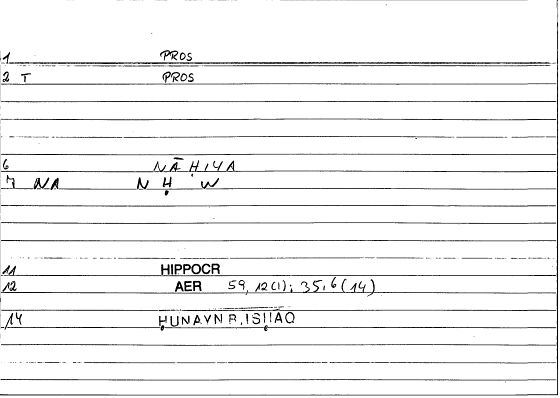 1 PROS
2 T PROS
6 NĀḤIYA
7 NA N Ḥ W
11 HIPPOCR
12 AER 59, 12(1); 35,6(14)
14 ḤUNAYN B. ISḤĀQ